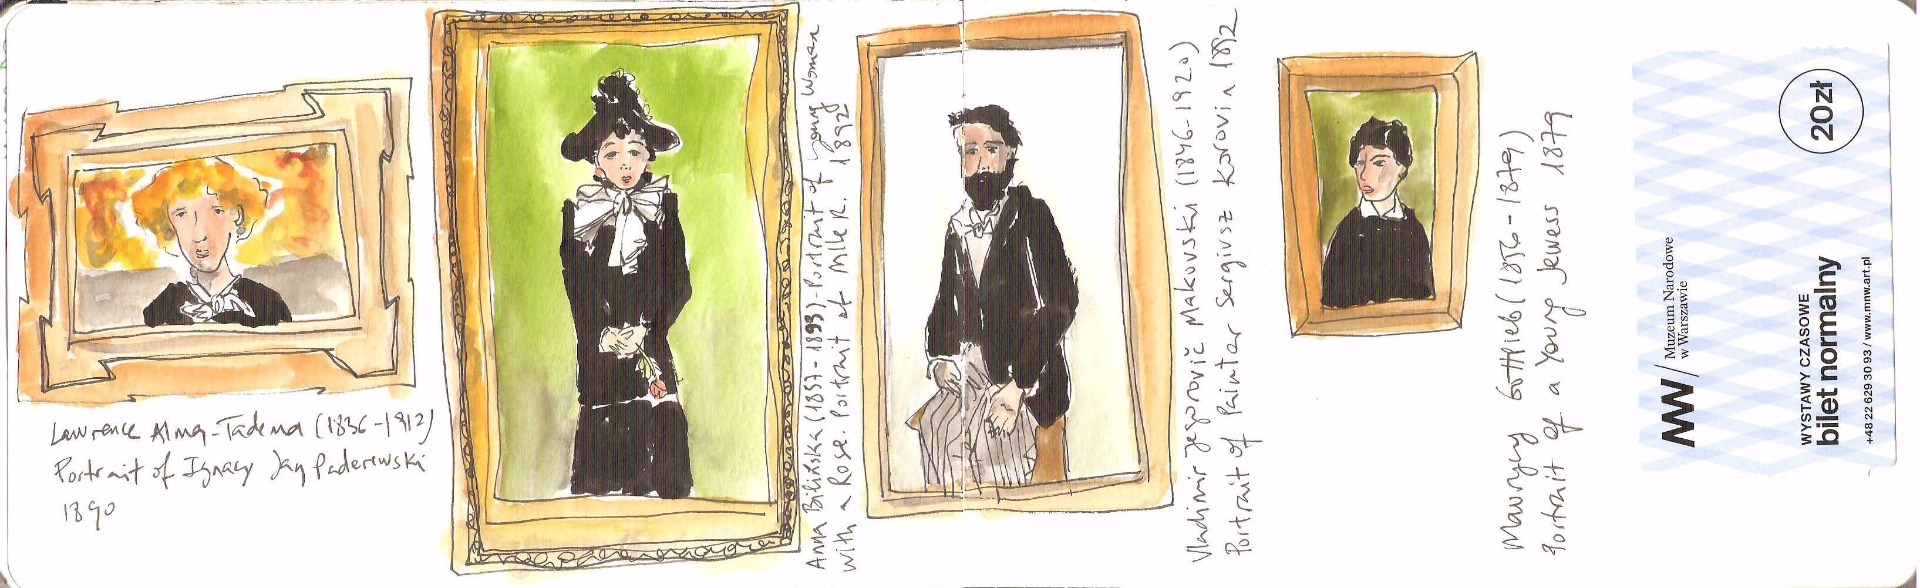 Lawrence Alma-Tadema (1836-1912)
Portrait of Ignacy Jan Paderewski
1890
Anna Bilińska (1857-1893)-Portrait of Young Woman
with a Rose. Portrait of Mlle R. 1892
Vladimir Jegorovič Makovski (1846-1920)
Portrait of Painter Sergiusz Korovin 1892
Maurycy Gottlieb (1856-1879)
Portrait of a Young Jewess 1879
Muzeum Narodowe
w Warszawie
20zł
WYSTAWY CZASOWE
bilet normalny
+48 22 629 30 93 / www.mnw.art.pl